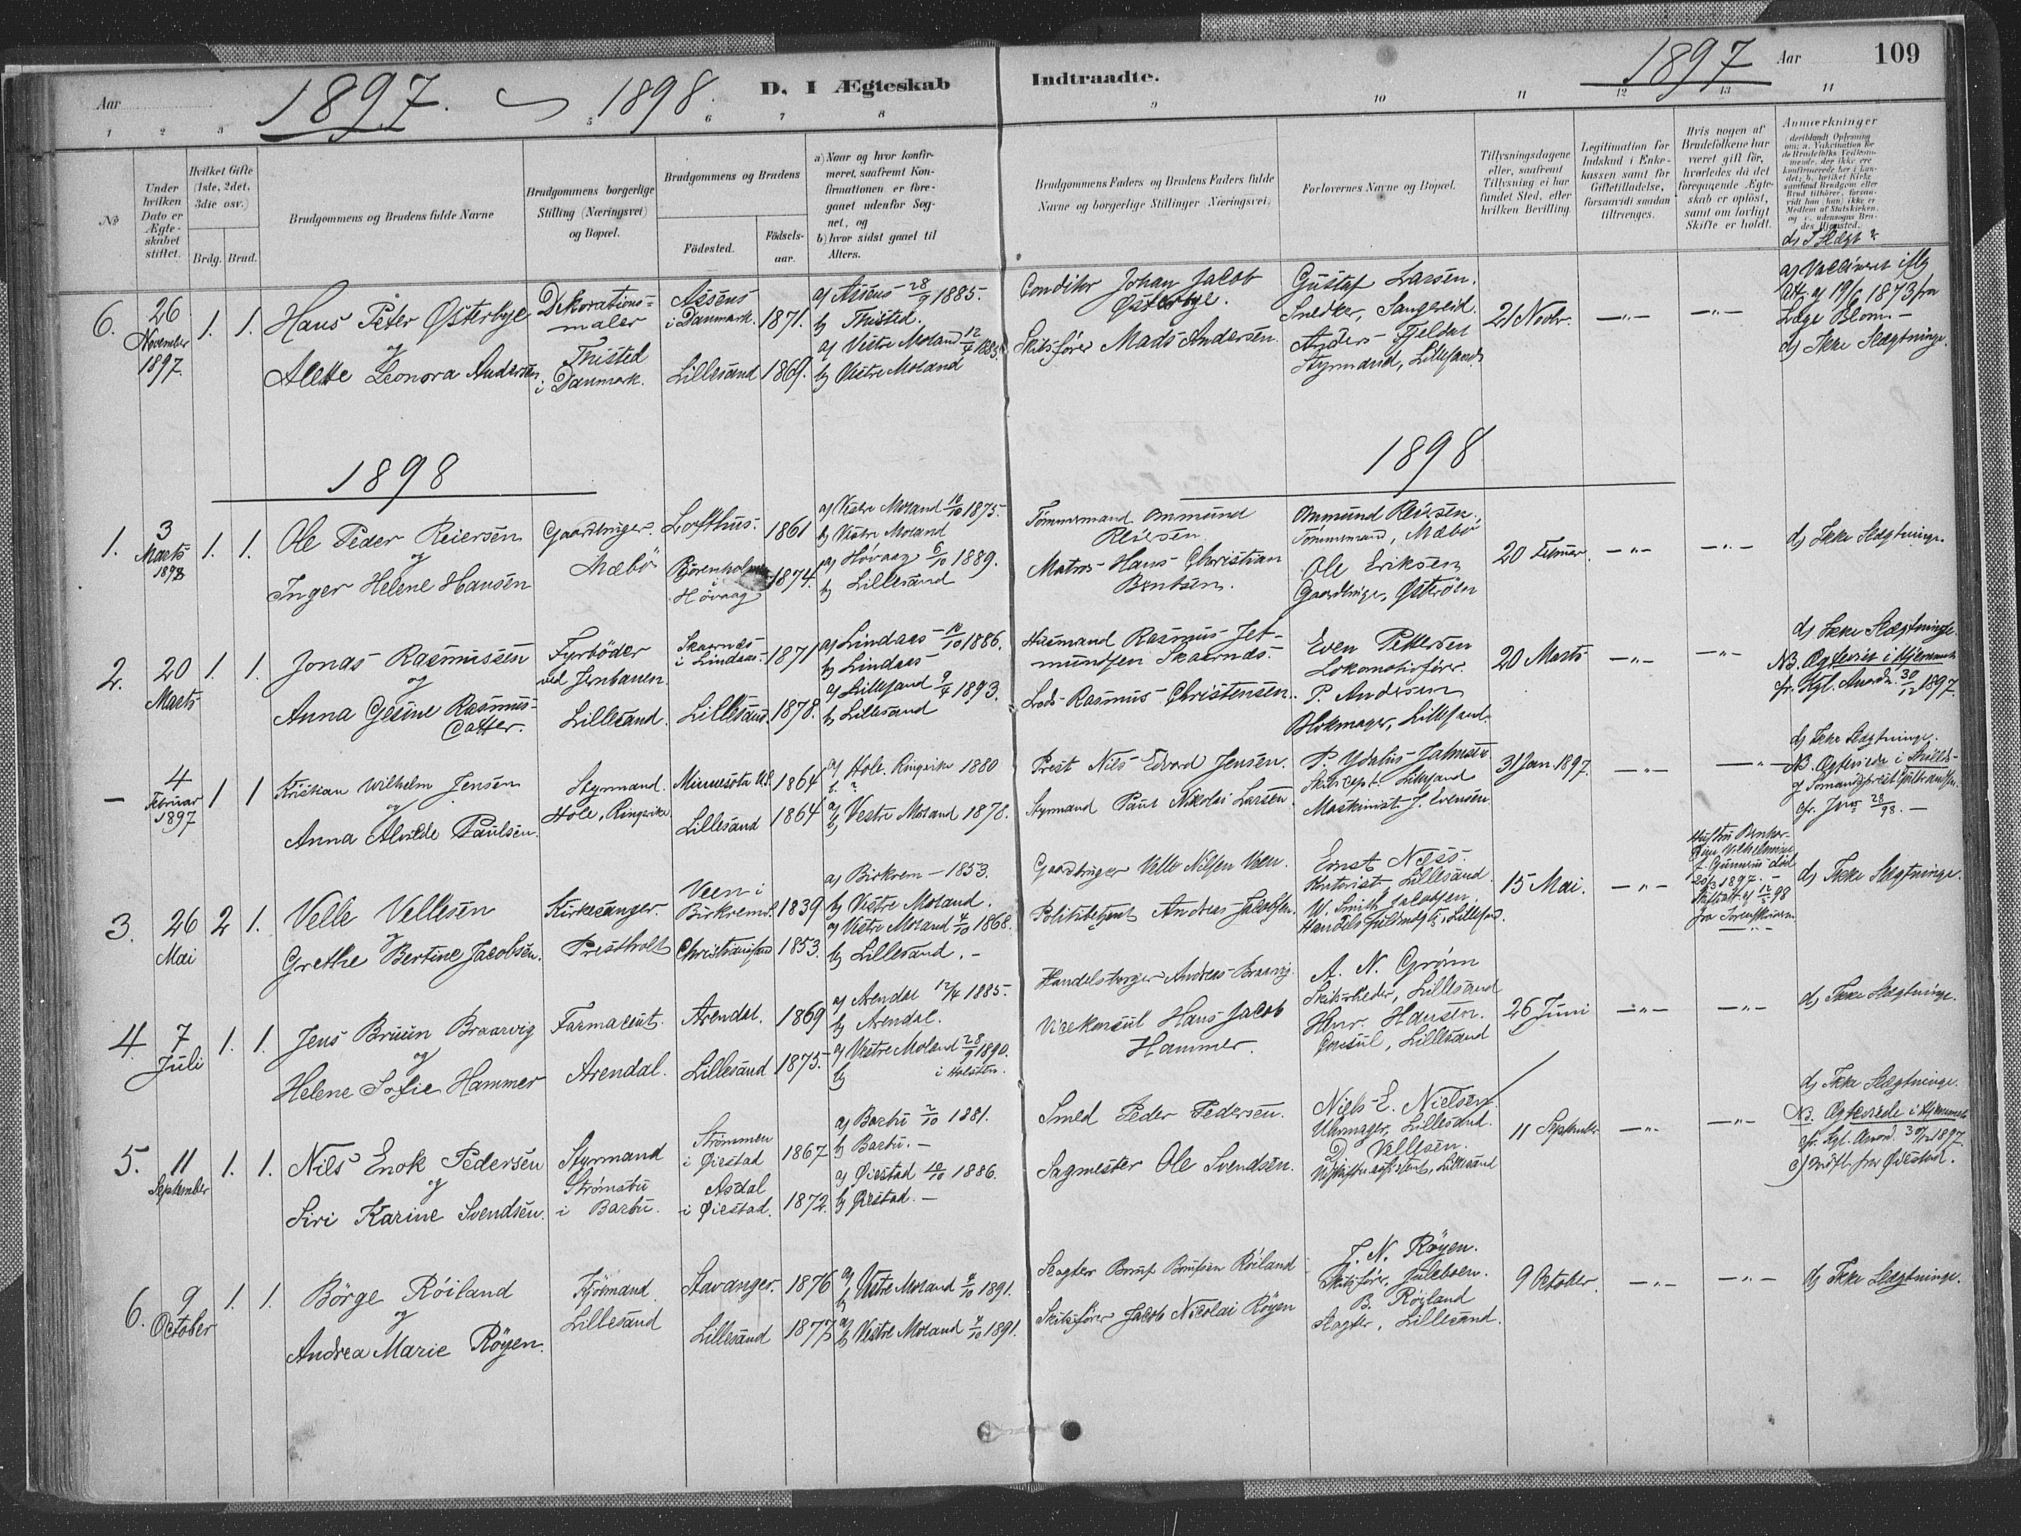 Aar 1897. 1898. D. I Ægteskab Indtraadte. 1897 Aar 109
1 2 3 5 6 7 8 9 10 11 12 13 14
No
Under hvilken Dato er Ægteskabet stiftet.
Hvilket Gifte (1ste, 2det, 3die osv.)
Brdg. Brud.
Brudgommens og Brudens fulde Navne
Brudgommens borgerlige Stilling (Næringsvei) og Bopæl.
Brudgommens og Brudens
Fødested.
Fødsels-aar.
a) Naar og hvor konfirmeret, saafremt Konfirmationen er foregaaet udenfor Sognet, og
b) hvor sidst gaaet til Alters.
Brudgommens Faders og Brudens Faders fulde Navne og borgerlige Stillinger (Næringsvei)
Forlovernes Navne og Bopæl.
Tillysningsdagene eller, saafremt Tillysning ei har fundet Sted, efter hvilken Bevilling
Legitimation for Indskud i Enkekassen samt for Giftetilladelse, forsaavidt saadan tiltrænges.
Hvis nogen af Brudefolkene har været gift før, hvorledes da det foregaaende Ægteskab er opløst, samt om lovligt Skifte er holdt.
Anmærkninger
6. 26 November 1897. 1. 1.
Hans Peter Østerbye
og
Alette Leonora Andersen
Dekorationsmaler
Thisted i Danmark.
Assens i Danmark. 1871.
Lillesand 1869.
a) Assens 28/9 1885.
b) Thisted.
a) Vestre Moland 12/4 1885
b) Vestre Moland
Conditor Johan Jacob Østerbye.
Skibsfører Mads Andersen.
Gustaf Larsen.
Snedker, Sangereid.
Anders Fjeldal
Styrmand, Lillesand.
21 Novbr. —"— —"—
a) Vaccineret iflg Att. af 19/6 1873 fra Læge Blom —
d) Ikke Slægtninge.
1898 1898
1. 3 Marts 1898 1. 1.
Ole Peder Reiersen
og
Inger Helene Hansen
Gaardbruger.
Mæbø
Lofthus. 1861
i Høvaag 1874.
a) Vestre Moland 10/10 1875.
b) Vestre Moland
a) Høvaag 6/10 1889.
b) Lillesand
Tømmermand Ommund Reiersen
Matros Hans Christian Berntsen.
Ommund Reiersen,
Tømmermand, Mæbø
Ole Eriksen
Gaardbruger, Østerøen
20 Februar. —"— —"—
d) Ikke Slægtninge.
2. 20 Marts 1. 1.
Jonas Rasmussen
og
Anna Gesine Rasmusdatter.
Fyrbøder ved Jernbanen
Lillesand.
Skaarnæs i Lindaas. 1871
Lillesand 1878.
a) Lindaas 10/10 1886.
b) Lindaas
a) Lillesand 9/4 1893.
b) Lillesand
Husmand Rasmus Jetmundsen Skaarnæs.
Lods Rasmus Christensen.
Even Pettersen
Lokomotivfører.
P. Andersen
Blokmager, Lillesand.
20 Marts —"— —"—
d) Ikke Slægtninge
NB. Ægteviet i Hjemmet
cfr. Kgl. Anordn. 30/12 1897.
— 4 Februar 1897 1 1
Kristian Wilhelm Jensen
og
Anna Alvilde Paulsen.
Styrmand.
Hole, Ringerike
Minnesota U.S. 1864
Lillesand 1864
a) Hole Ringerike 1880
b) "
a) b) Vestre Moland 1878.
Prest Nils Edvard Jensen.
Styrmand Paul Nikolai Larsen.
Skibscapt. Lillesand
Maskinist J. Evensen
31 Jan 1897. —"— —"—
d) Ikke Slægtninge.
3. 26 Mai 2 1.
Velle Vellesen
og
Grethe Bertine Jacobsen.
Kirkesanger.
Prestholt
Veen i Birkrem. 1839
Christianssand 1853.
a) Birkrem — 1853.
b) Vestre Moland.
a) Vestre Moland 4/10 1868.
b) Lillesand. —
Gaardbruger Velle Nilsen Veen.
Politibetjent Andreas Jacobsen.
Ernst Næss.
Kontorist, Lillesand
W. Smith Jacobsen
Handelsfuldmægtig, Lillesand.
15 Mai. —"—
d) Ikke Slægtninge.
4. 7 Juli 1. 1.
Jens Bruun Braarvig
og
Helene Sofie Hammer
Farmaceut.
Arendal.
Arendal. 1869
Lillesand 1875.
a) Arendal 12/4 1885.
b) Arendal.
a) Vestre Moland 28/9 1890.
b) i Holsten.
Handelsborger Andreas Braarvig.
Vicekonsul Hans Jacob Hammer.
A. N. Grøm
Skibsrheder, Lillesand
Consul, Lillesand
26 Juni —"— —"—
d) Ikke Slægtninge.
5. 11 September 1. 1.
Nils Enok Pedersen
og
Siri Karine Svendsen.
Styrmand
Strømsbu i Barbu.
Strømmen i Øiestad 1867
Asdal i Øiestad. 1872.
a) Barbu 2/10 1881.
b) Barbu. —
a) Øiestad 10/10 1886.
b) Øiestad. —
Smed Peder Pedersen.
Sagmester Ole Svendsen.
Niels E. Nielsen.
Uhrmager, Lillesand.
D. Vellesen.
11 September —"— —"—
d) Ikke Slægtninge.
NB. Ægteviede i Hjemmet
cfr. Kgl. Anord. 30/12 1897.
6. 9 October 1. 1.
Börge Röiland
og
Andrea Marie Røyen.
Kjöbmand
Lillesand
Stavanger. 1876
Lillesand 1877
a) b) Vestre Moland 4/10 1891.
a) b) Vestre Moland 4/10 1891.
Skibsfører Jacob Nicolai Røyen
J. N. Røyen.
Skibsfører,
B. Røiland
Slagter, Lillesand.
9 October. —"— —"—
d) Ikke Slægtninge.